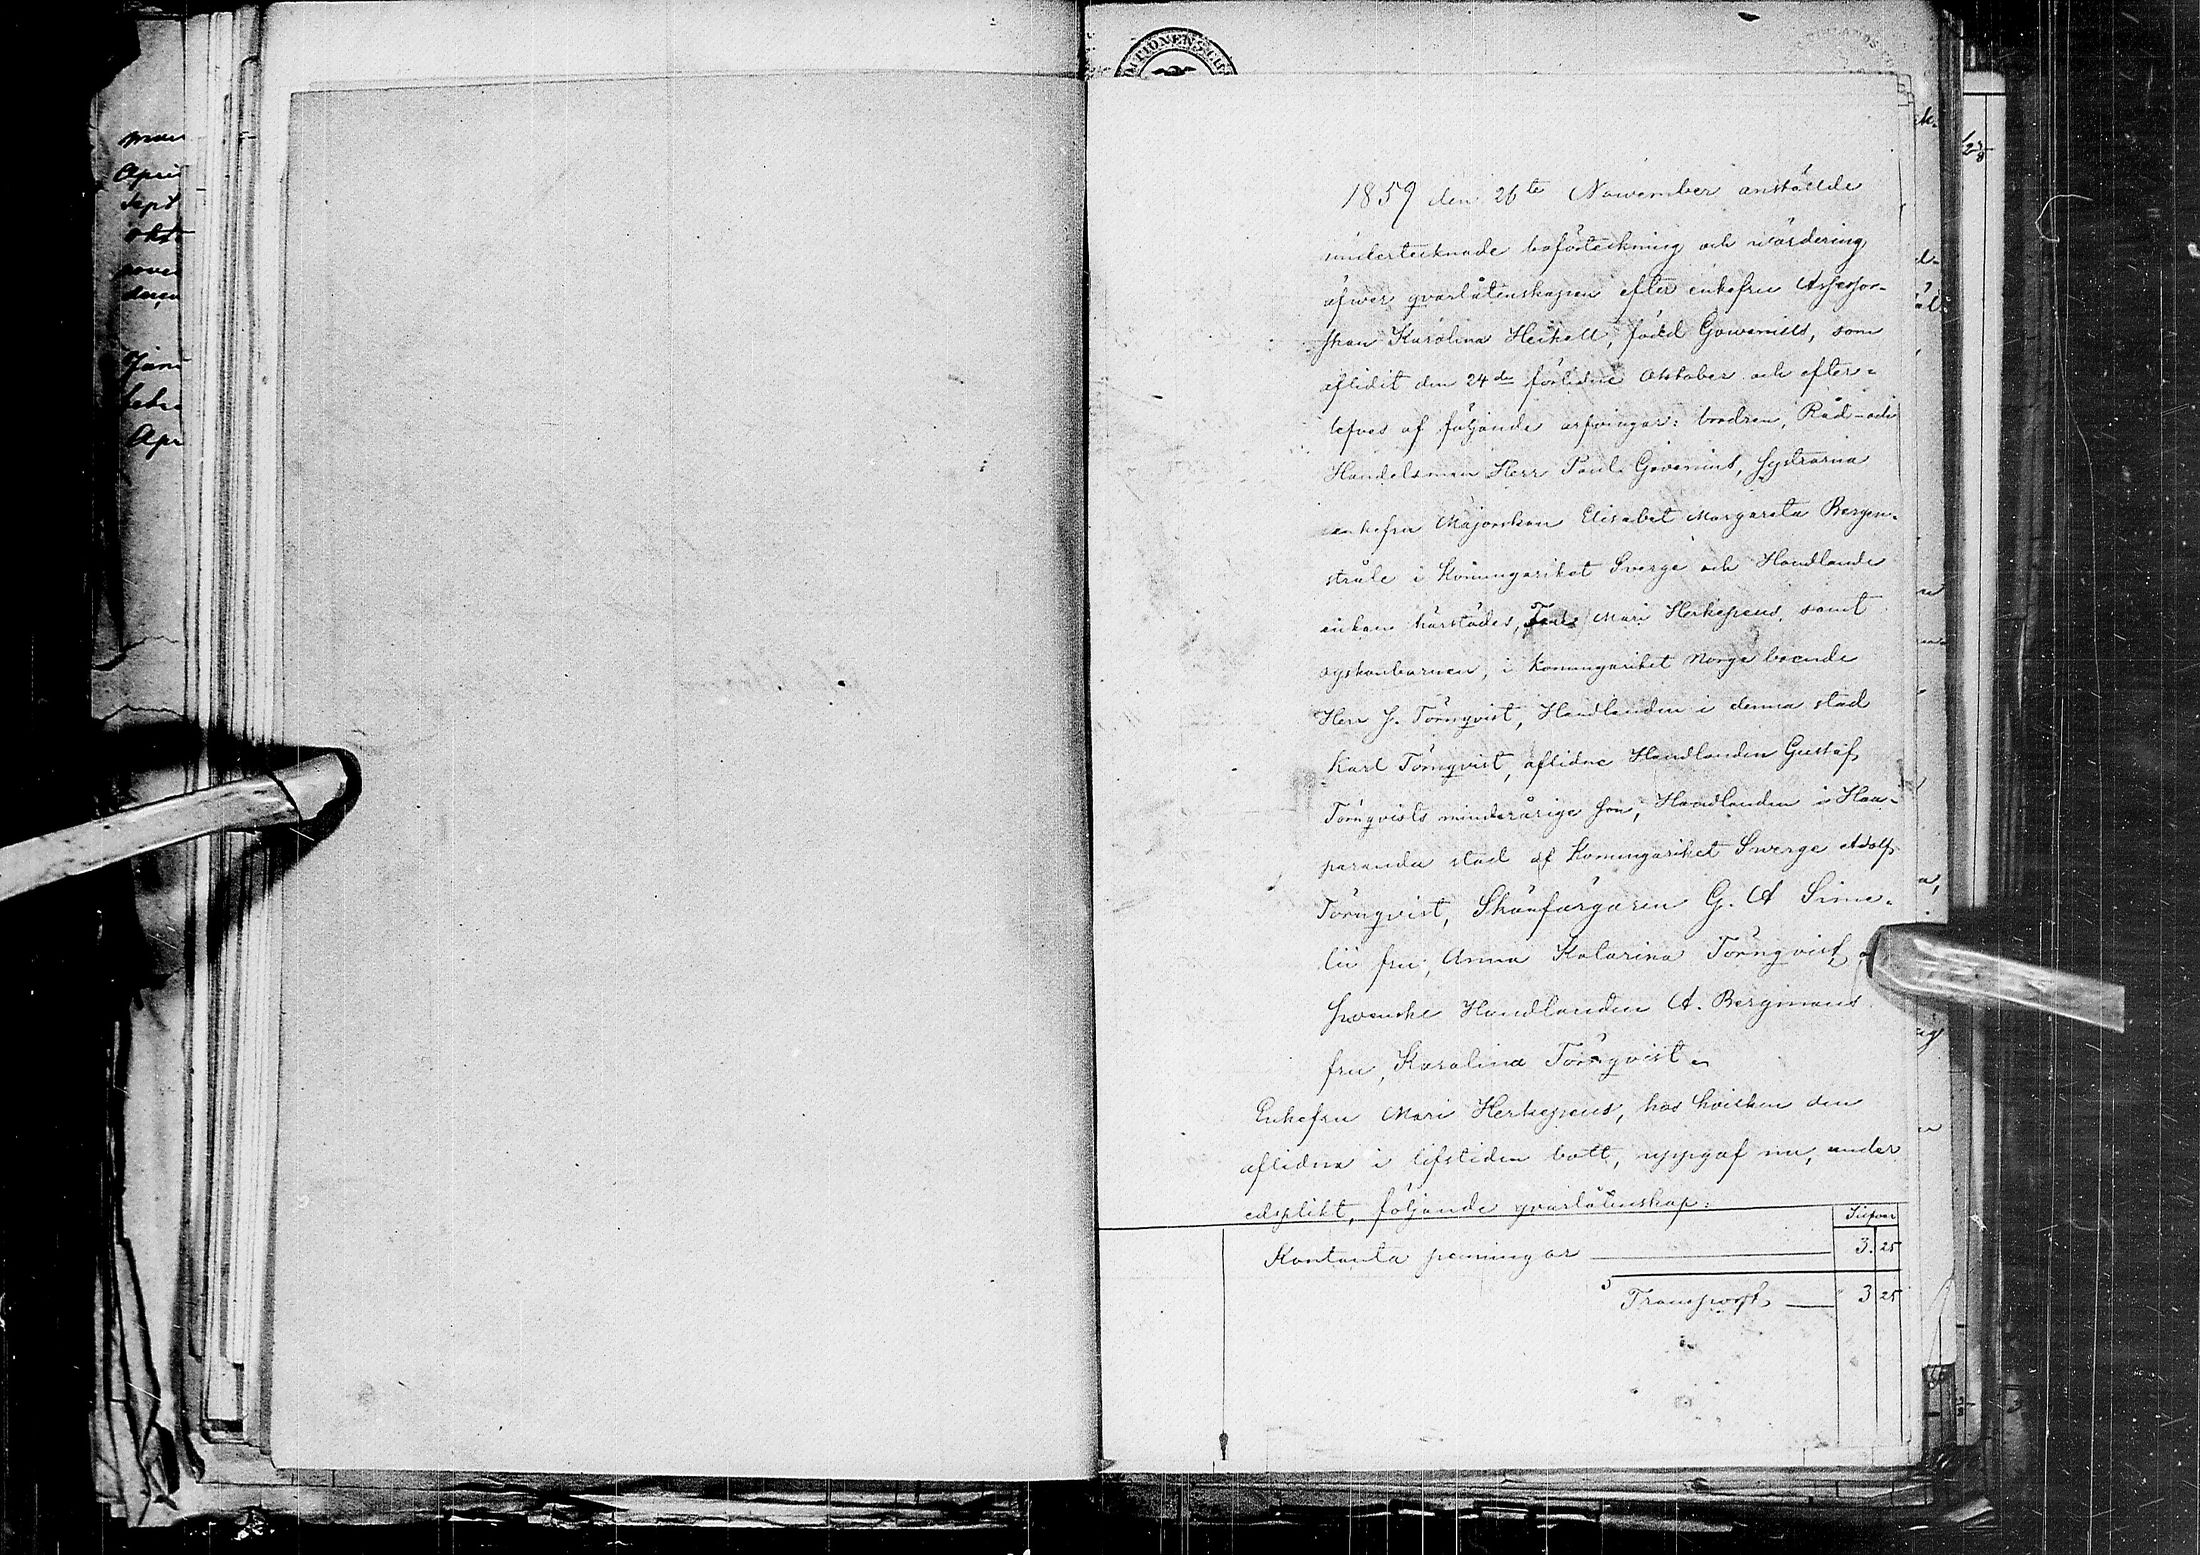 April
Sept
1859 den 26te November anstältde
undertecknade boförteckning och värdering
öfver qvarlåtenskapen efter enkefru Assessor-
skan Karolina Heikell, född Govenius, som
aflidit den 24de förlidne Oktober och efter-
lefves af följande arfvingar: brodren, Råd- och
Handelsman Herr Paul Govenius, systrarna
enkefru Majorskan Elisabet Margareta Bergen-
stråle i Konungariket Sverge och Handlande
enkan härstädes, Mari Herkepeus, samt
syskonbarnen, i Konungariket Norge boende
Herr J. Törnqvist, Handlanden i denna stad
Karl Törnqvist, aflidne Handlanden Gustaf
Törnqvists minderårige son, Handlanden i Haa-
paranda stad af Konungariket Swerge Adolf
Törnqvist, Skönfärgaren G. A Sime-
lii fru, Anna Katarina Törnqvist
Svenske Handlanden A. Bergmans
fru, Karolina Törnqvist.
Enkefru Mari Herkepeus, hos hvilken den
aflidna i lifstiden bott, uppgaf nu, under
edsplikt, följande qvarlåtenskap:
Silfver
Kontanta penningar 3. 25
Transport 3 25